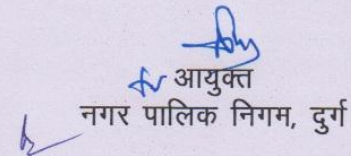 आयुक्त
नगर पालिक निगम, दुर्ग